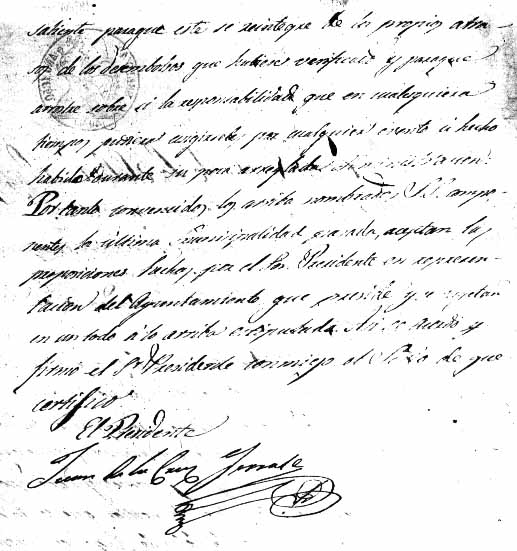 saliente paraque este se reintegre de los propios atra-
sos de los desembolsos que hubiere verificado y paraque
arrostre sobre si la responsabilidad que en cualesquiera
tiempos pudiera exigirsele por cualquier evento ó hecho
habido durante su poco arreglada Administracion.
Por tanto convencidos los arriba nombrados S.S. compo-
nentes la última Municipalidad pasada, aceptan las
proposiciones hechas por el Sor. Presidente en represen-
tacion del Ayuntamiento que preside y se sujetan
en un todo á lo arriba estipulado. Asi se acordó y
firmó el Sr. Presidente conmigo el Srio de que
certifico
El Presidente
Juan de la Cruz